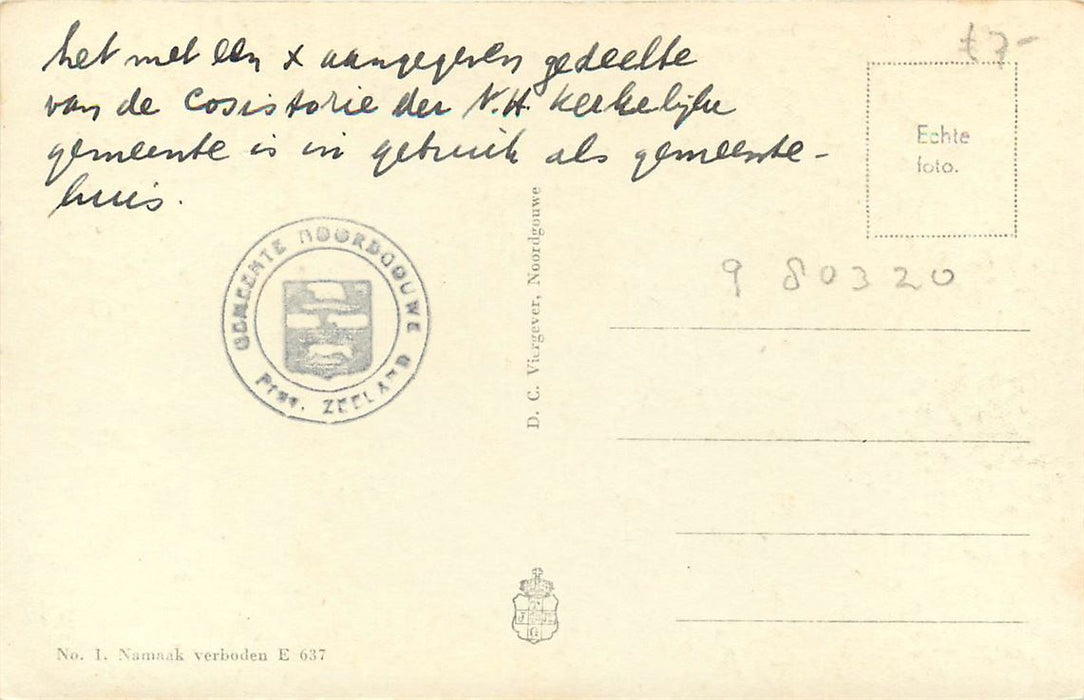 het met een x aangegeven gedeelte
van de Cosistorie der N.H. Kerkelijke
gemeente is in gebruik als gemeente-
huis.
£7-
Echte
foto.
9 80320
GEMEENTE NOORDGOUWE
Prov. ZEELAND
D. C. Viergever, Noordgouwe
No. 1. Namaak verboden E 637